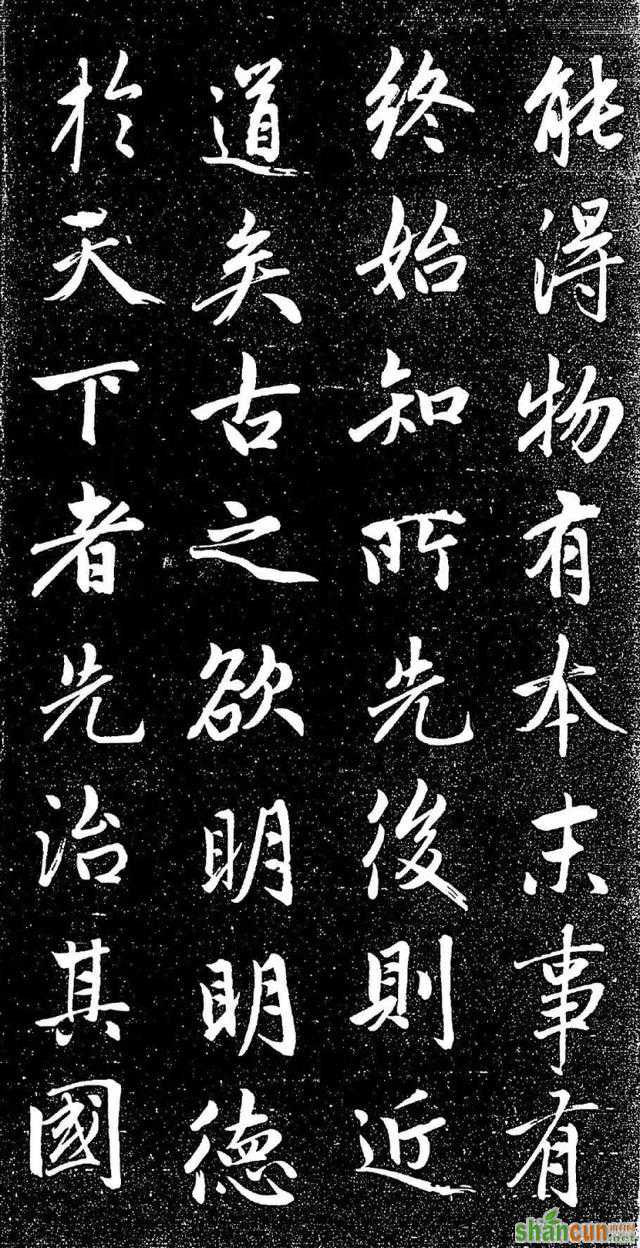 能得物有本末事有
終始知所先後則近
道矣古之欲明明德
於天下者先治其國
shancun
.net